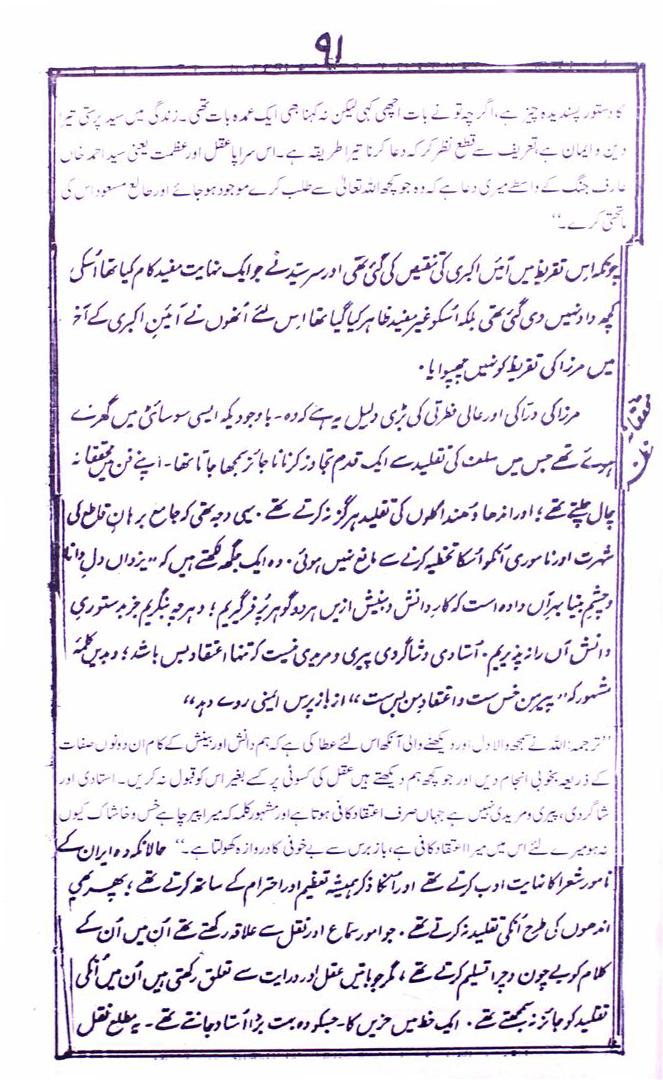 ۹۱
کا دستور پسندیدہ چیز ہے، اگرچہ تو نے بات اچھی کہی لیکن نہ کہنا بھی ایک عمدہ بات تھی۔ زندگی میں سید پرستی تیرا
دین و ایمان ہے، تعریف سے قطع نظر کرکہ دعا کرنا تیرا طریقہ ہے۔ اس سراپا عقل اور عظمت یعنی سید احمد خاں
عارف جنگ کے واسطے میری دعا ہے کہ وہ جو کچھ اللہ تعالیٰ سے طلب کرے موجود ہو جائے اور طالع مسعود اس کی
ماتحتی کرے۔“
چونکہ اس تقریظ میں آئین اکبری کی تنقیص کی گئی تھی اور سرسید نے جو ایک نہایت مفید کام کیا تھا اُسکی
کچھ داد نہیں دی گئی تھی بلکہ اُسکو غیر مفید ظاہر کیا گیا تھا اس لئے اُنھوں نے آئین اکبری کے آخر
میں مرزا کی تقریظ کو نہیں چھپوایا۔
مرزا کی درّاکی اور عالی فطرتی کی بڑی دلیل یہ ہے کہ وہ۔ باوجودیکہ ایسی سوسائٹی میں گھرے
ہوئے تھے جس میں سلف کی تقلید سے ایک قدم تجاوز کرنا ناجائز سمجھا جاتا تھا۔ اپنے فن میں محققانہ
محققانہ نظر
چال چلتے تھے؛ اور اندھا دھند اگلوں کی تقلید ہرگز نہ کرتے تھے۔ یہی وجہ تھی کہ جامع برہانِ قاطع کی
شہرت اور ناموری اُنکو اُسکا تخطیہ کرنے سے مانع نہیں ہوئی۔ وہ ایک جگہ لکھتے ہیں کہ ”یزداں دلِ دانا
و چشمِ بینا بہرآں دادہ است کہ کارِ دانش و بینش ازیں ہر دو گوہر بُرفرگیریم؛ و ہرچہ بنگریم جز بدستوریِ
دانش آں را نپذیریم۔ اُستادی و شاگردی پیری و مریدی نیست کہ تنہا اعتقاد بس باشد؛ و بدیں کلمۂ
مشہور کہ ”پیرِ من خس ست و اعتقادِ من بس ست“ از باز پرس ایمنی روے دہد“
”ترجمہ: اللہ نے سمجھ والا دل اور دیکھنے والی آنکھ اس لئے عطا کی ہے کہ ہم دانش اور بینش کے کام ان دونوں صفات
کے ذریعہ بخوبی انجام دیں اور جو کچھ ہم دیکھتے ہیں عقل کی کسوٹی پر کسے بغیر اس کو قبول نہ کریں۔ استادی اور
شاگردی، پیری و مریدی نہیں ہے جہاں صرف اعتقاد کافی ہوتا ہے اور مشہور کلمہ کہ میرا پیر چاہے خس و خاشاک کیوں
نہ ہو میرے لئے اس میں میرا اعتقاد کافی ہے، باز پرس سے بے خوفی کا دروازہ کھولتا ہے۔“ حالانکہ وہ ایران کے
نامور شعرا کا نہایت ادب کرتے تھے اور اُنکا ذکر ہمیشہ تعظیم اور احترام کے ساتھ کرتے تھے؛ پھر بھی
اندھوں کی طرح اُنکی تقلید نہ کرتے تھے۔ جو امور سماع اور نقل سے علاقہ رکھتے تھے اُن میں اُن کے
کلام کو بے چون و چرا تسلیم کرتے تھے، مگر جو باتیں عقل اور درایت سے تعلق رکھتی ہیں اُن میں اُنکی
تقلید کو جائز نہ سمجھتے تھے۔ ایک خط میں حزیں کا۔ جسکو وہ بہت بڑا اُستاد جانتے تھے۔ یہ مطلع نقل